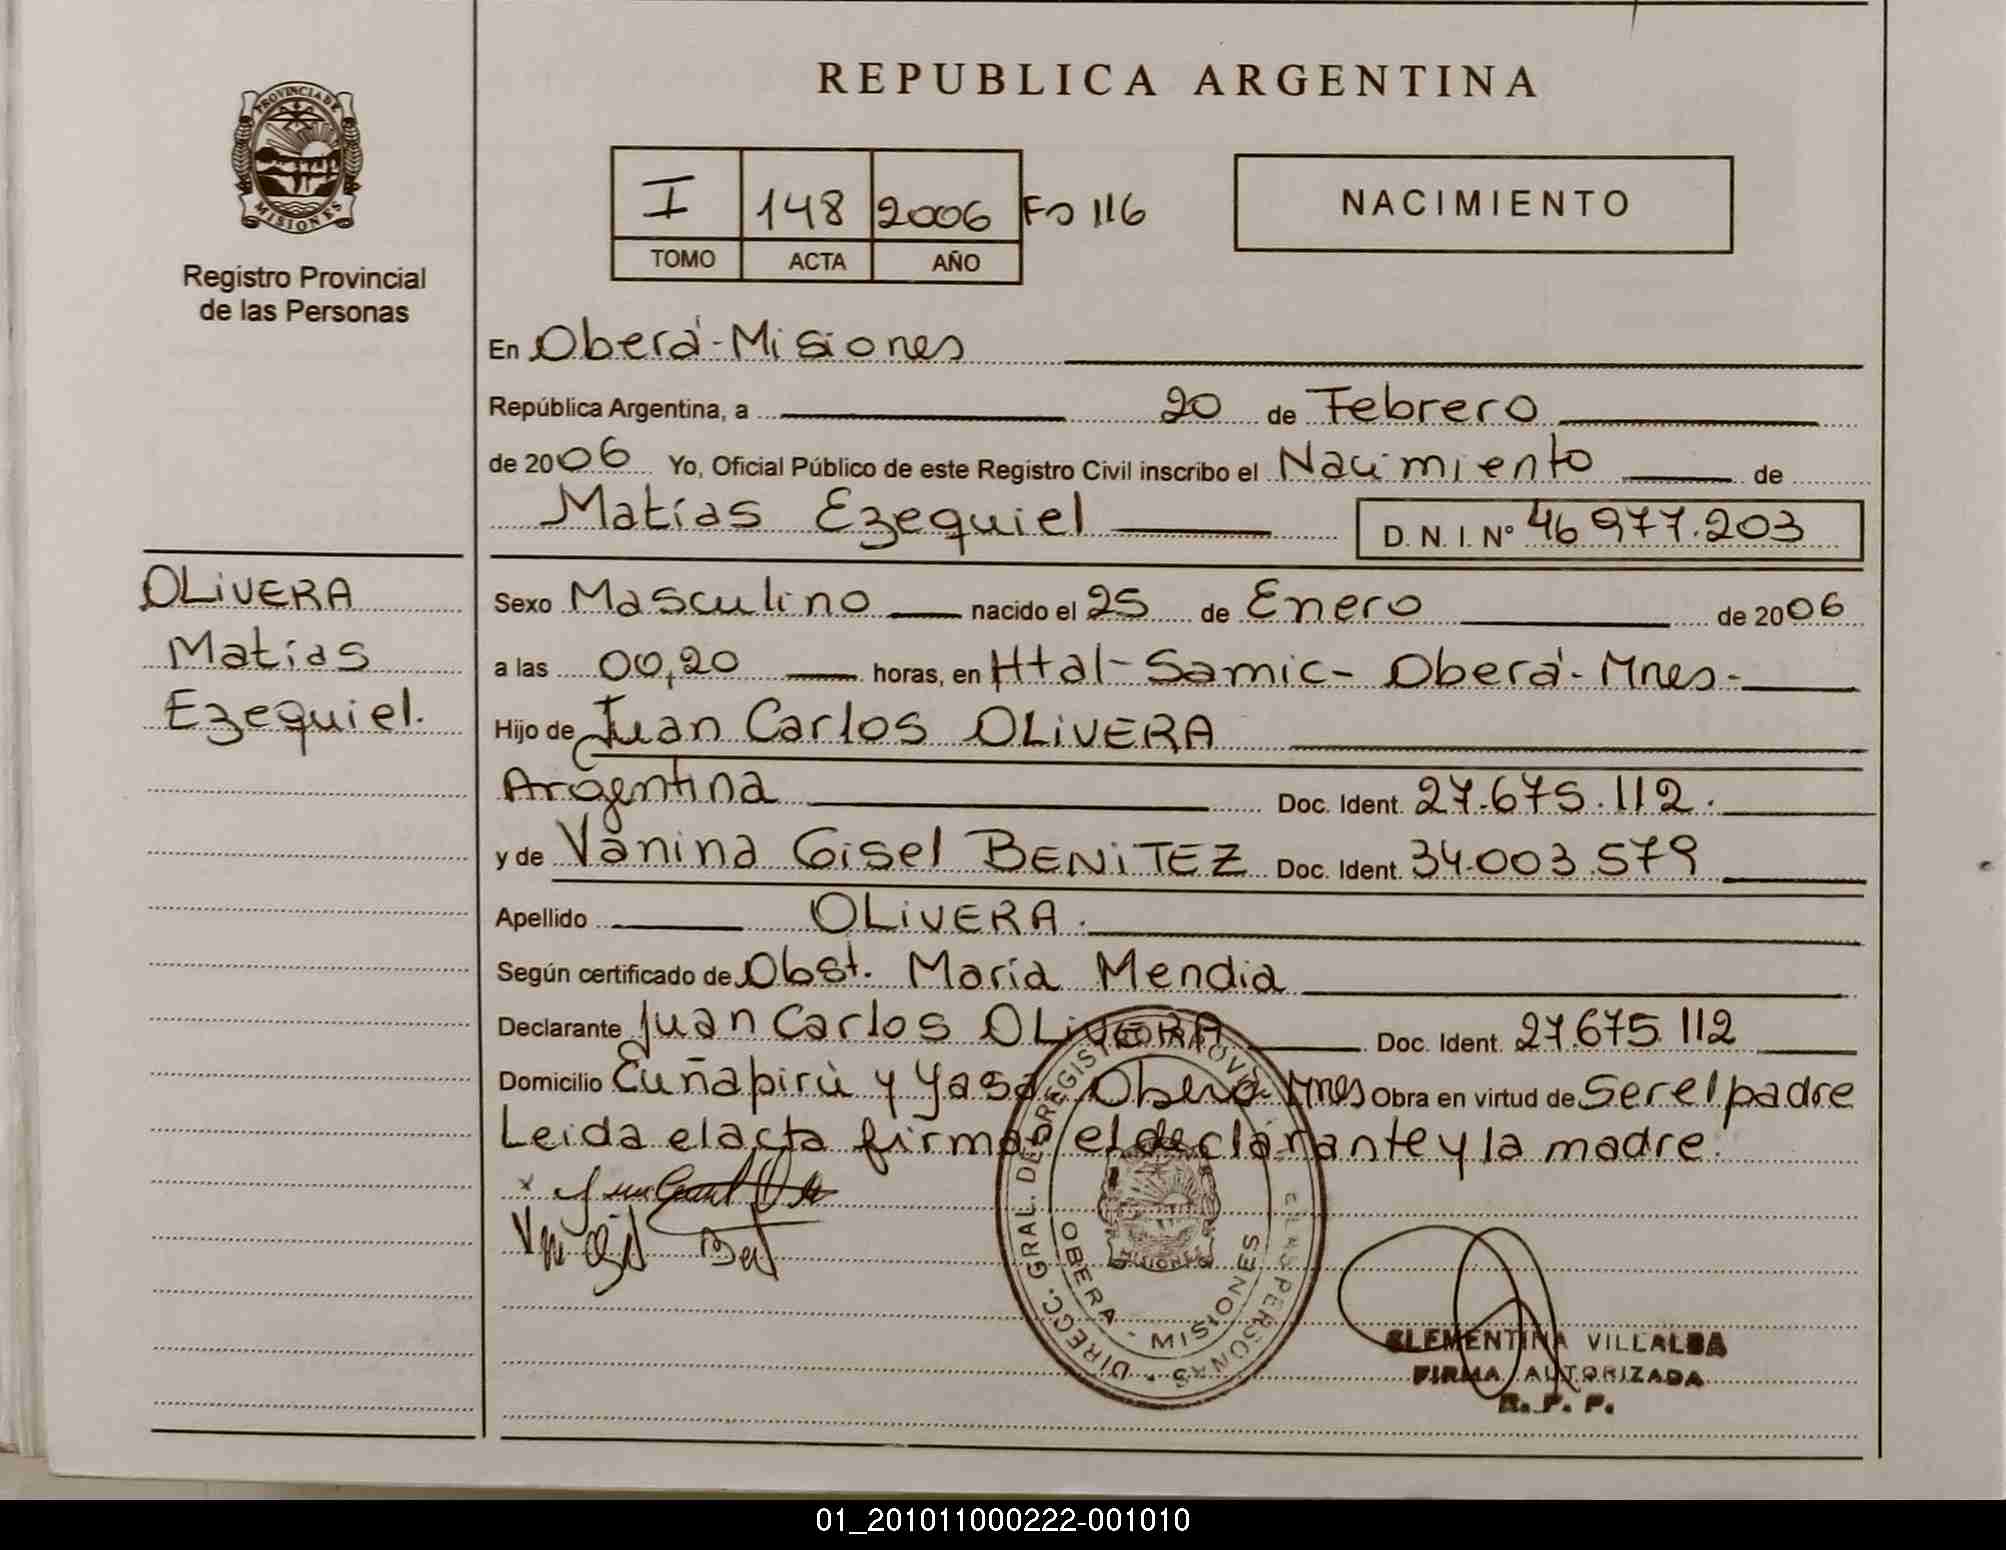 REPUBLICA ARGENTINA
PROVINCIA DE
MISIONES
Registro Provincial
de las Personas
I 148 2006 Fo 116
TOMO ACTA AÑO
NACIMIENTO
En Oberá-Misiones
República Argentina, a 20 de Febrero
de 2006 Yo, Oficial Público de este Registro Civil inscribo el Nacimiento de
Matías Ezequiel D. N. I. N° 46977.203
OLiVERA
Matías
Ezequiel.
Sexo Masculino nacido el 25 de Enero de 2006
a las 00,20 horas, en Htal-Samic-Oberá-Mnes-
Hijo de Juan Carlos OLiVERA
Argentina Doc. Ident. 27.675.112.
y de Vanina Gisel BENiTEZ Doc. Ident. 34.003.579
Apellido OLiVERA.
Según certificado de Obst. María Mendia
Declarante Juan Carlos OLiVERA Doc. Ident. 27.675.112
Domicilio Cuñapirú y Yasa Oberá Mnes Obra en virtud de Ser el padre
Leida el acta firman el declarante y la madre.
DIRECC. GRAL. DE REGISTRO PROVINCIAL DE LAS PERSONAS
OBERA - MISIONES
MISIONES
CLEMENTINA VILLALBA
FIRMA AUTORIZADA
R. P. P.
01_201011000222-001010